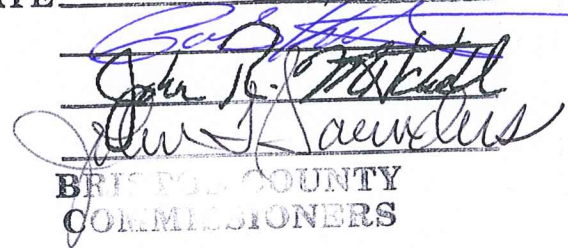 ATE
John R. Mitchell
John T. Saunders
BRISTOL COUNTY
COMMISSIONERS